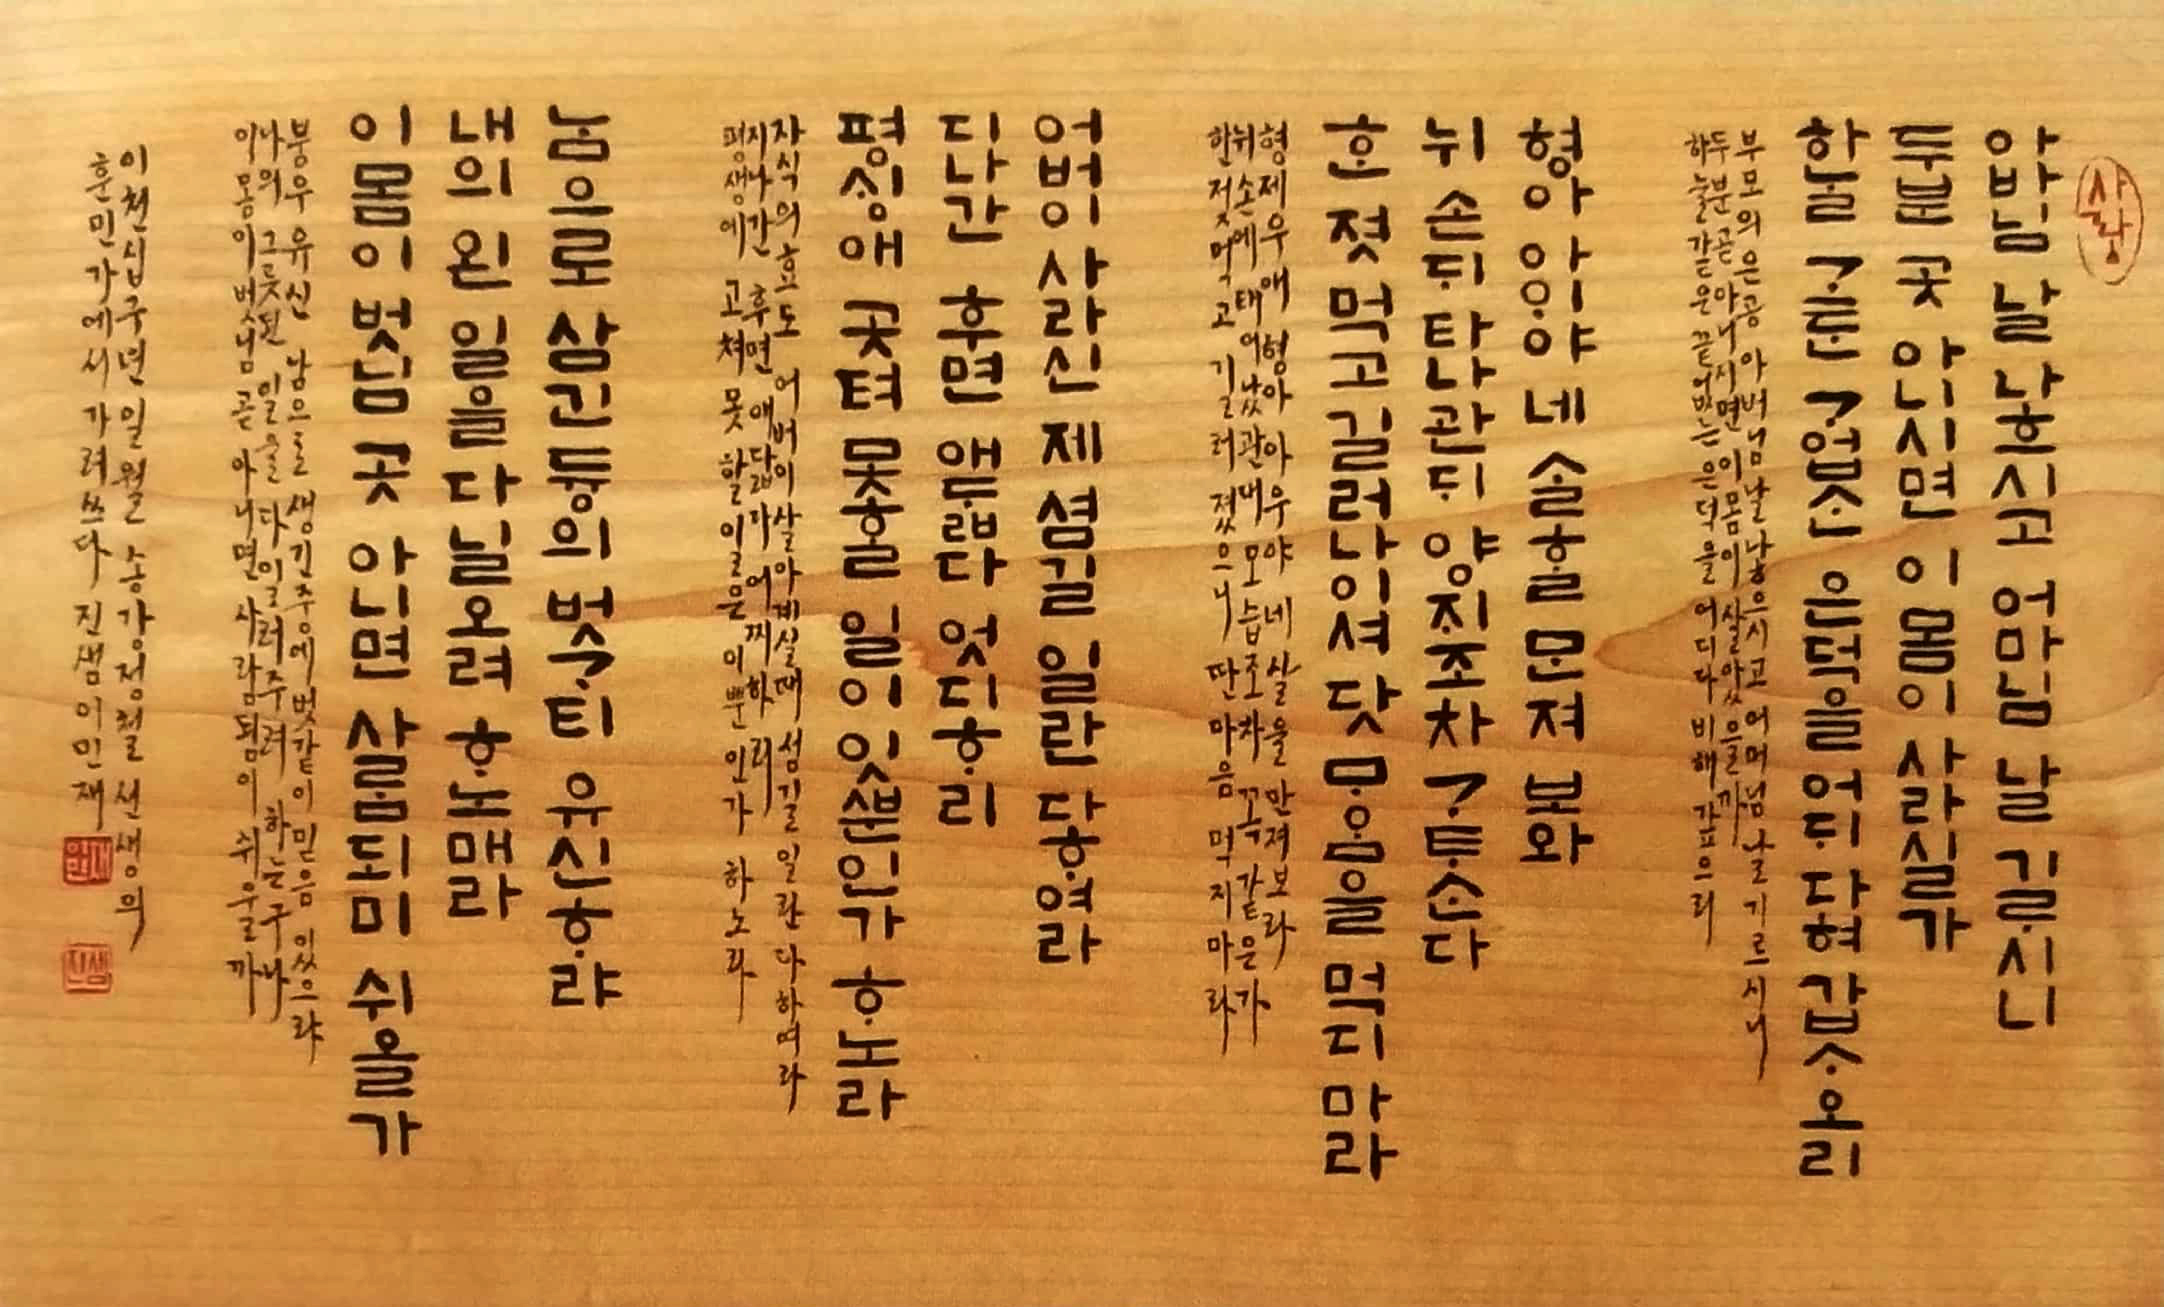 사랑
아바님 날 나ᄒᆞ시고 어마님 날 기ᄅᆞ시니
두분 곳 아니시면 이 몸이 사라실가
하ᄂᆞᆯ ᄀᆞᄐᆞᆫ ᄀᆞ업ᄉᆞᆫ 은덕을 어ᄃᆡ 다혀 갑ᄉᆞ오리
부모의 은공 아버님 날 낳으시고 어머님 날 기르시니
두 분 곧 아니시면 이 몸이 살았을까
하늘 같은 끝없는 은덕을 어디다 비해 갚으리
형아 아이야 네 ᄉᆞᆯᄒᆞᆯ ᄆᆞᆫ져 보와
뉘손ᄃᆡ 타나관ᄃᆡ 양ᄌᆡ조차 ᄀᆞᄐᆞᄉᆞᆫ다
ᄒᆞᆫ 젓 먹고 길러나이셔 닷 ᄆᆞᄋᆞᆷ을 먹디 마라
형제우애 형아 아우야 네 살을 만져보라
뉘 손에 태어났관대 모습조차 꼭 같은가
한 젖 먹고 길러졌으니 딴 마음 먹지 마라
어버이 사라신 제 셤길 일란 다ᄒᆞ여라
디나간 후면 애ᄃᆞᆲ다 엇디ᄒᆞ리
평ᄉᆡᆼ애 곳텨 못ᄒᆞᆯ 일이 잇ᄲᅮᆫ인가 ᄒᆞ노라
자식의 효도 어버이 살아계실 때 섬길 일란 다하여라
지나간 후면 애닯다 어찌하리
평생에 고쳐 못 할 일은 이뿐인가 하노라
ᄂᆞᆷ으로 삼긴 듕의 벗ᄀᆞᆺ티 유신ᄒᆞ랴
내의 왼 일을 다 닐오려 ᄒᆞ노매라
이 몸이 벗님 곳 아니면 사ᄅᆞᆷ되미 쉬올가
붕우유신 남으로 생긴 중에 벗같이 믿음 있으랴
나의 그릇된 일을 다 일러주려 하는구나
이 몸이 벗님 곧 아니면 사람됨이 쉬울까
이천십구년 일월 송강 정철 선생의
훈민가에서 가려쓰다 진샘 이민재